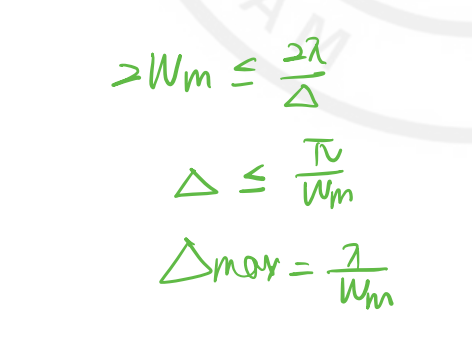 AM
2Wm ≤ 2π/Δ
Δ ≤ π/Wm
Δmax = π/Wm